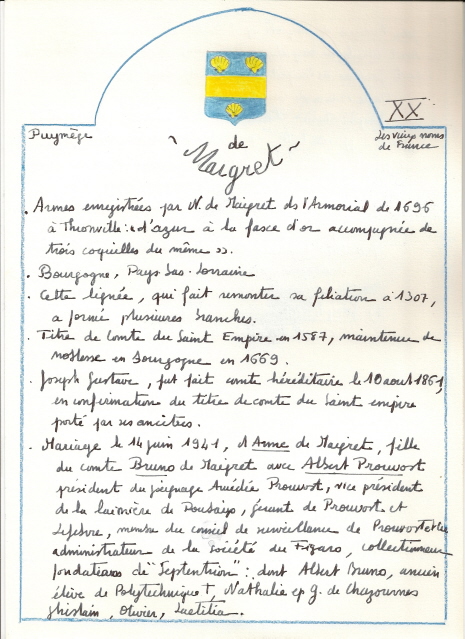 XX
Puymège
Les vieux noms
de France
de
"Maigret"
. Armes enregistrées par N. de Maigret ds l'Armorial de 1696
à Thionville : « d'azur à la fasce d'or accompagnée de
trois coquilles du même ».
. Bourgogne, Pays bas - Lorraine
. Cette lignée, qui fait remonter sa filiation à 1307,
a formé plusieures branches.
. Titre de Comte du Saint Empire en 1587, maintenue de
noblesse en Bourgogne en 1669.
. Joseph Gustave, fut fait comte héréditaire le 10 aout 1861,
en confirmation du titre de comte du Saint empire
porté par ses ancêtres.
. Mariage le 14 juin 1941, d'Anne de Maigret, fille
du comte Bruno de Maigret avec Albert Prouvost
président du peignage Amédée Prouvost, vice président
de la lainière de Roubaix, gérant de Prouvost et
Lefebvre, membre du conseil de surveillance de Prouvost et Cie
administrateur de la société du Figaro, collectionneur
fondateur de "Septentrion" : dont Albert Bruno, ancien
élève de Polytechnique †, Nathalie ep G. de Chazournes
Ghislain, Olivier, Laetitia.